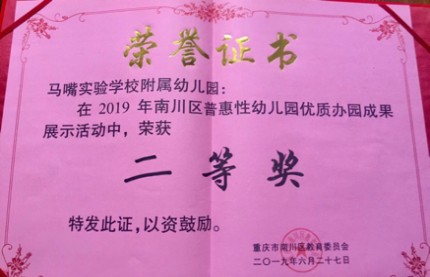 荣誉证书
马嘴实验学校附属幼儿园:
在 2019 年南川区普惠性幼儿园优质办园成果
展示活动中，荣获
二等奖
特发此证,以资鼓励。
重庆市南川区教育委员会
二〇一九年六月二十七日